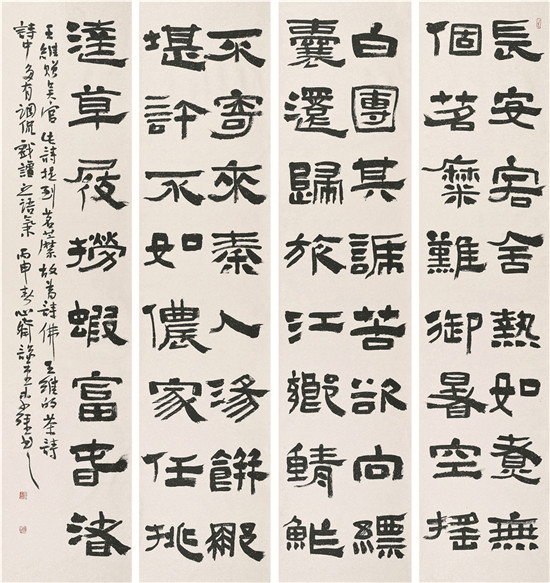 長安客舍熱如煮無
個茗糜難御暑空搖
白團其諦苦欲向縹
囊還歸旅江鄉鯖鮓
不寄來秦人湯餅那
堪許不如儂家任挑
達草屐撈蝦富春渚
王維贈吳官 此詩提到茗糜 故為詩佛王維的茶詩
詩中多有調侃戲謔之語氣 丙申